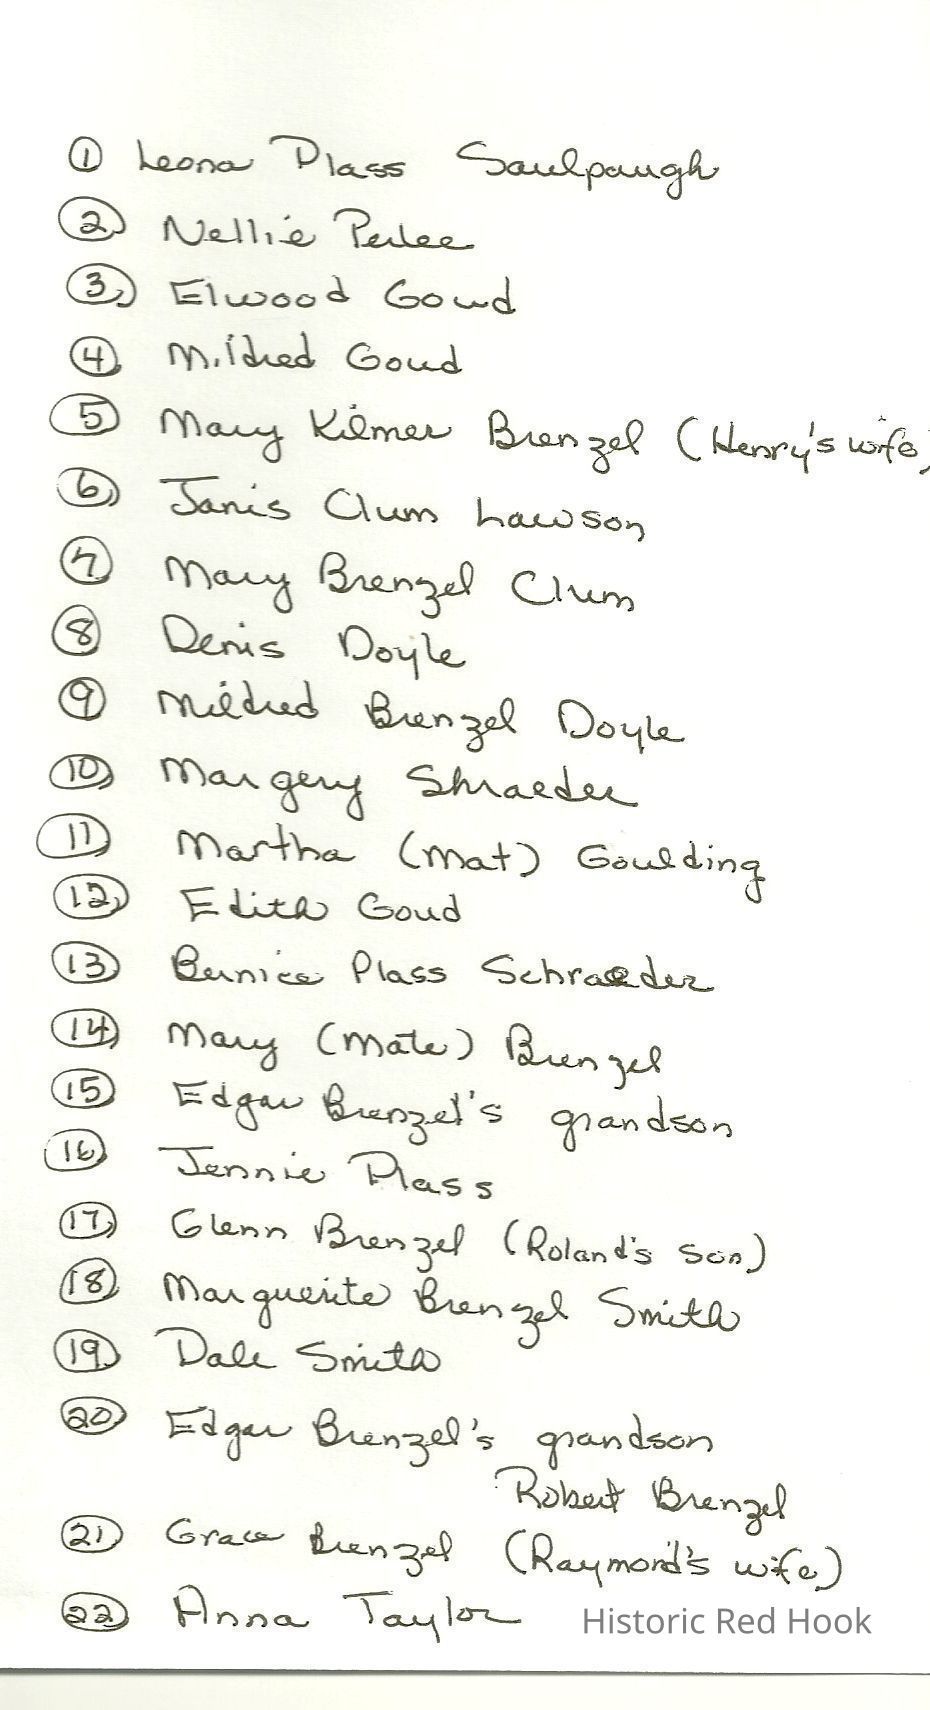 1 Leona Plass Saulpaugh
2 Nellie Perlee
3 Elwood Goud
4 Mildred Goud
5 Mary Kilmer Brenzel (Henry's wife)
6 Janis Clum Lawson
7 Mary Brenzel Clum
8 Denis Doyle
9 Mildred Brenzel Doyle
10 Margery Shraeder
11 Martha (Mat) Goulding
12 Edith Goud
13 Bernice Plass Schraeder
14 Mary (Mate) Brenzel
15 Edgar Brenzel's grandson
16 Jennie Plass
17 Glenn Brenzel (Roland's son)
18 Marguerite Brenzel Smith
19 Dale Smith
20 Edgar Brenzel's grandson
Robert Brenzel
21 Grace Brenzel (Raymond's wife)
22 Anna Taylor
Historic Red Hook